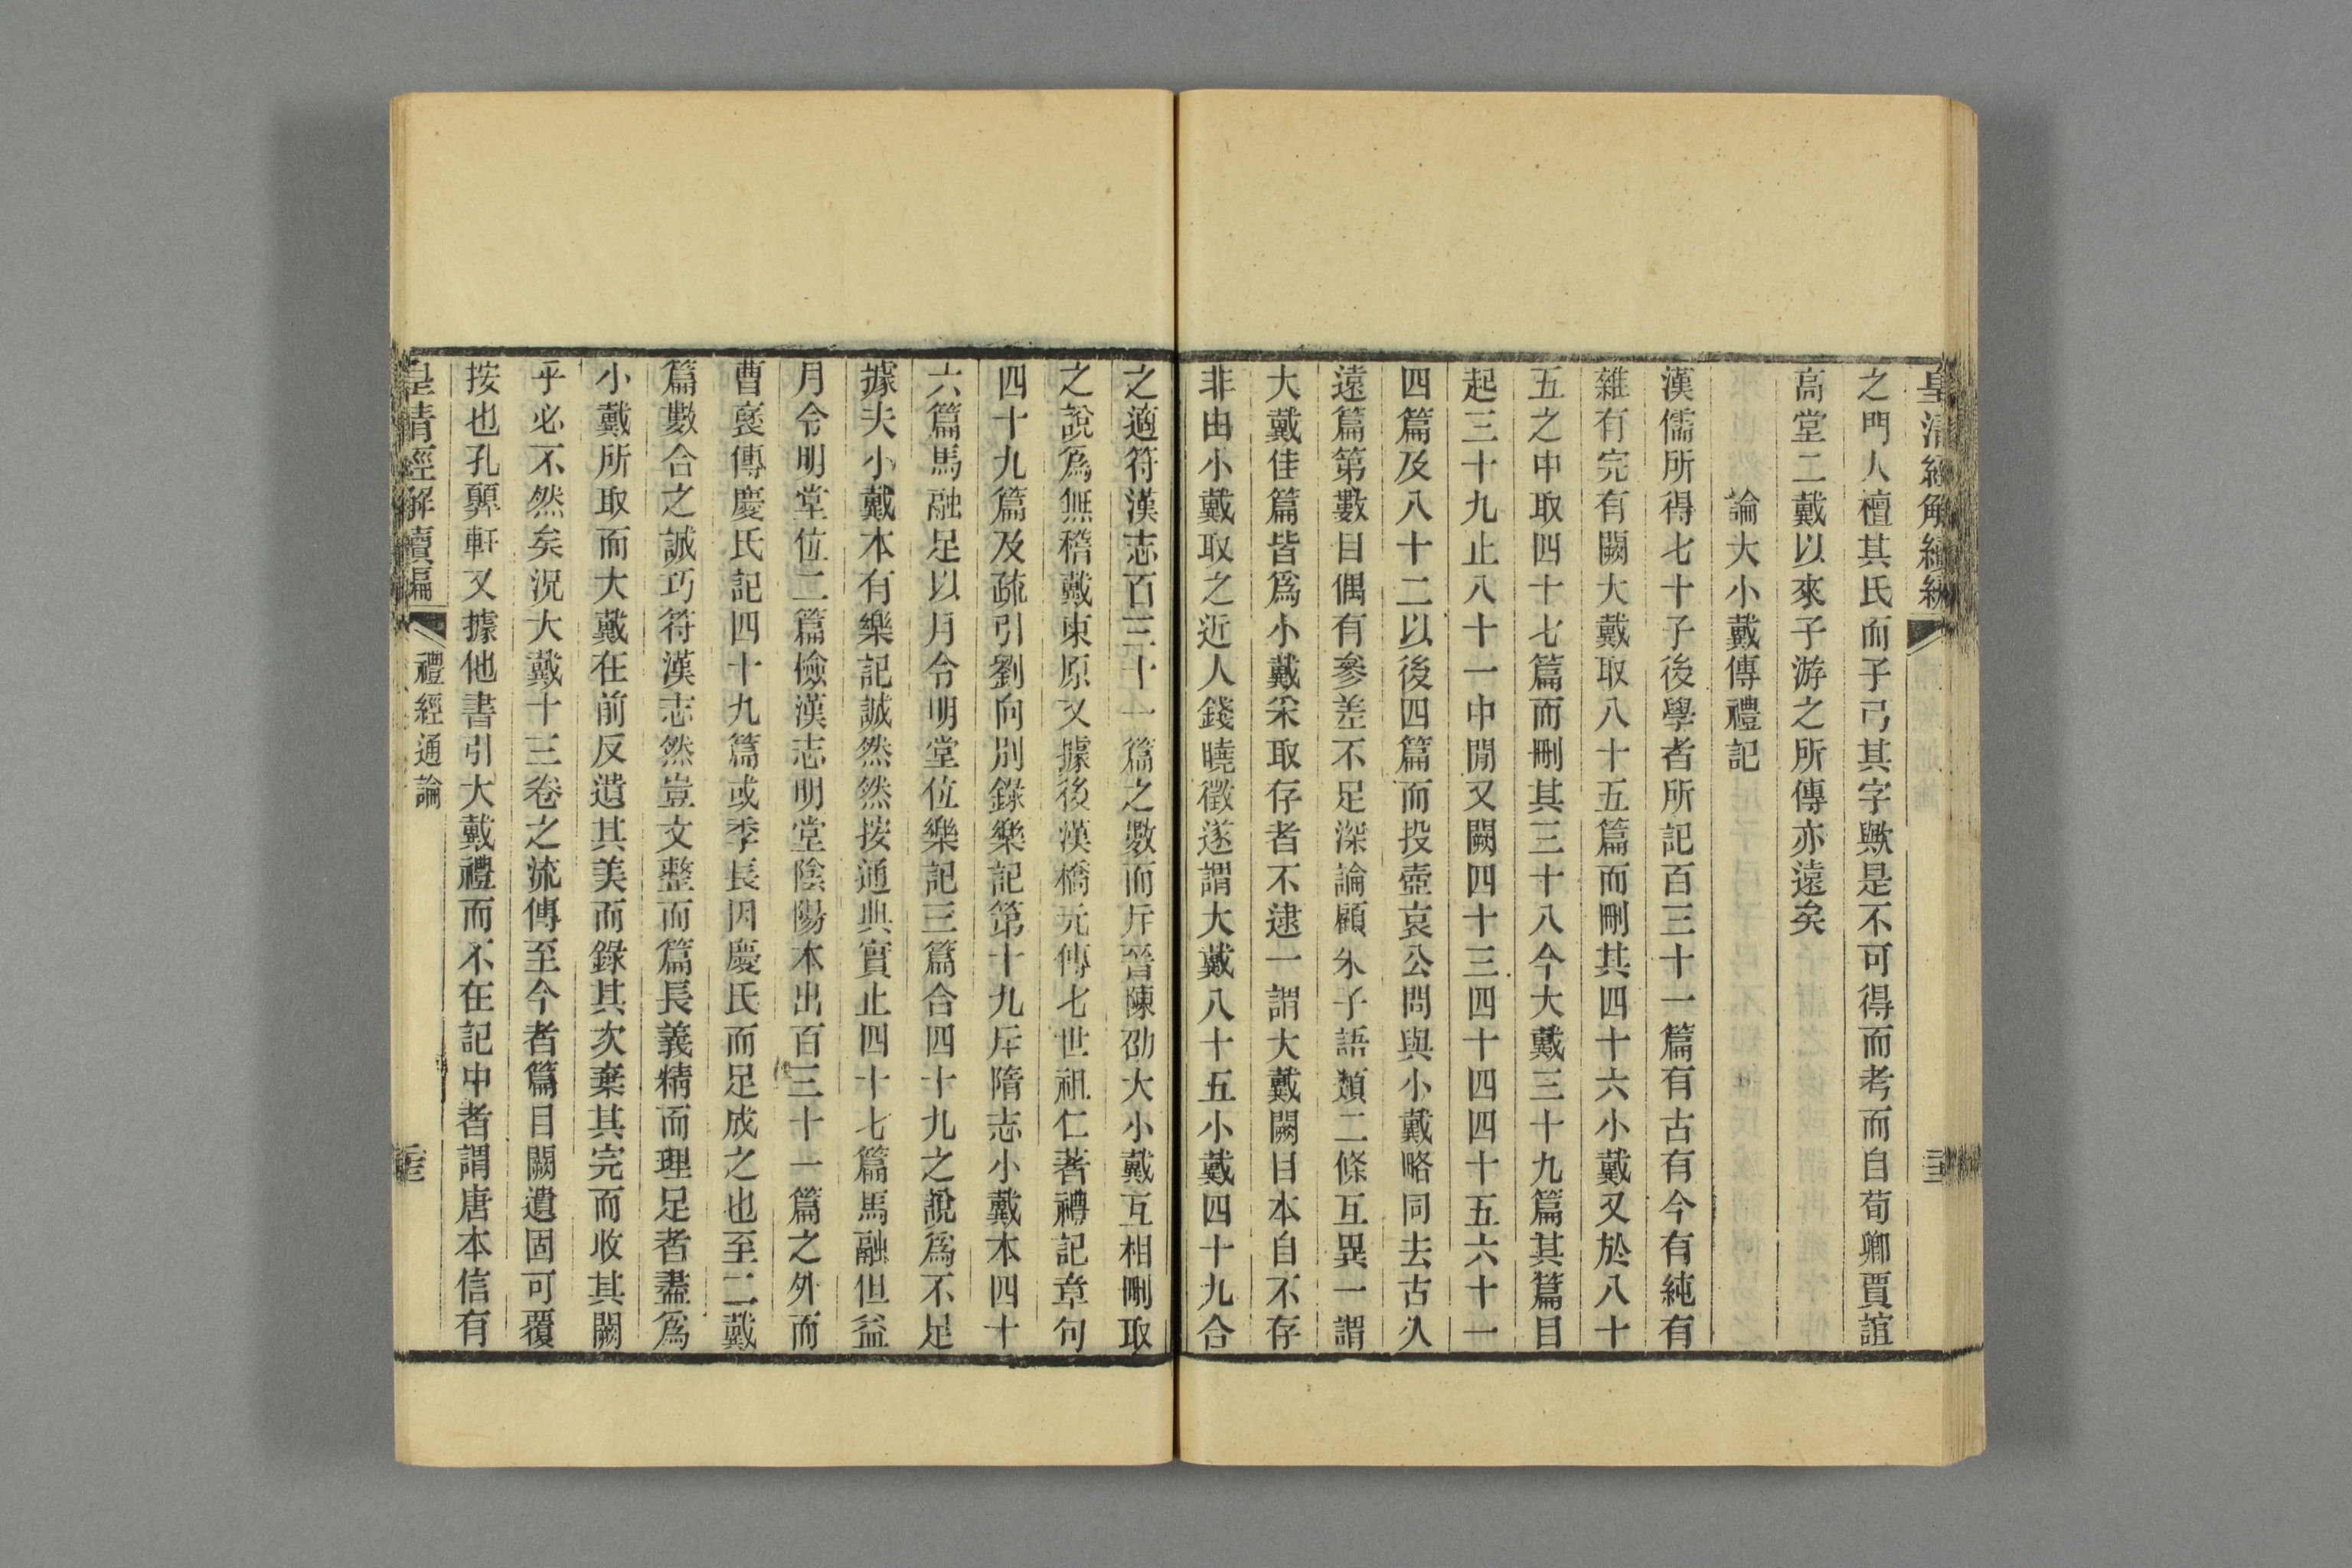 皇清經解續編
之門人檀其氏而子弓其字歟是不可得而考而自荀卿賈誼
高堂二戴以來子游之所傳亦遠矣
論大小戴傳禮記
漢儒所得七十子後學者所記百三十一篇有古有今有純有
雜有完有闕大戴取八十五篇而刪其四十六小戴又於八十
五之中取四十七篇而刪其三十八今大戴三十九篇其篇目
起三十九止八十一中閒又闕四十三四十四四十五六十一
四篇及八十二以後四篇而投壺哀公問與小戴略同去古久
遠篇第數目偶有參差不足深論顧朱子語類二條互異一謂
大戴佳篇皆爲小戴采取存者不逮一謂大戴闕目本自不存
非由小戴取之近人錢曉徵遂謂大戴八十五小戴四十九合
之適符漢志百三十一篇之數而斥晉陳劭大小戴互相刪取
之說爲無稽戴東原又據後漢橋元傳七世祖仁著禮記章句
四十九篇及疏引劉向別錄樂記第十九斥隋志小戴本四十
六篇馬融足以月令明堂位樂記三篇合四十九之說爲不足
據夫小戴本有樂記誠然然按通典實止四十七篇馬融但益
月令明堂位二篇儉漢志明堂陰陽本出百三十一篇之外而
曹褒傳慶氏記四十九篇或季長因慶氏而足成之也至二戴
篇數合之誠巧符漢志然豈文整而篇長義精而理足者盡爲
小戴所取而大戴在前反遺其美而錄其次棄其完而收其闕
乎必不然矣況大戴十三卷之流傳至今者篇目闕遺固可覆
按也孔顨軒又據他書引大戴禮而不在記中者謂唐本信有
皇清經解續編 禮經通論